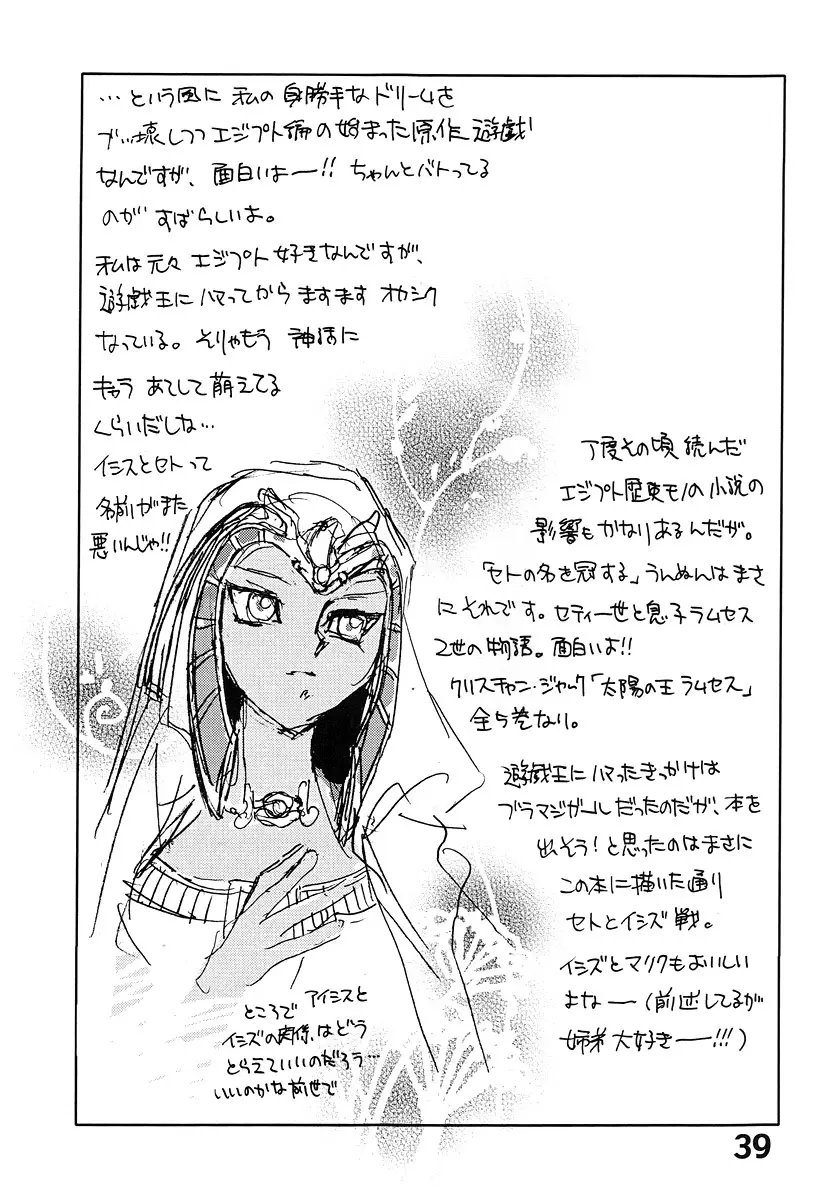 …という風に 私の身勝手なドリームを
ブッ壊しつつエジプト編の始まった原作遊戯
なんですが、面白いよー!! ちゃんとバトってる
のが すばらしいよ。
私は元々 エジプト好きなんですが、
遊戯王にハマってから ますます オカシク
なっている。そりゃもう 神話に
キュウ あてして萌えてる
くらいだしな…
イシスとセトって
名前がまた
悪いんじゃ!!
丁度その頃 読んだ
エジプト歴史モノの小説の
影響もかなりあるんだが。
「セトの名を冠する」うんぬんはまさ
にそれです。セティ一世と息子ラムセス
2世の物語。面白いよ!!
クリスチャン・ジャック「太陽の王 ラムセス」
全5巻なり。
遊戯王にハマったきっかけは
ブラマジガールだったのだが、本を
出そう!と思ったのはまさに
この本に描いた通り
セトとイシズ戦。
イシズとマリクもおいしい
よなー(前述してるが
姉弟 大好きー!!!)
ところで アイシスと
イシズの関係はどう
とらえていいのだろう…
いいのかな前世で
39